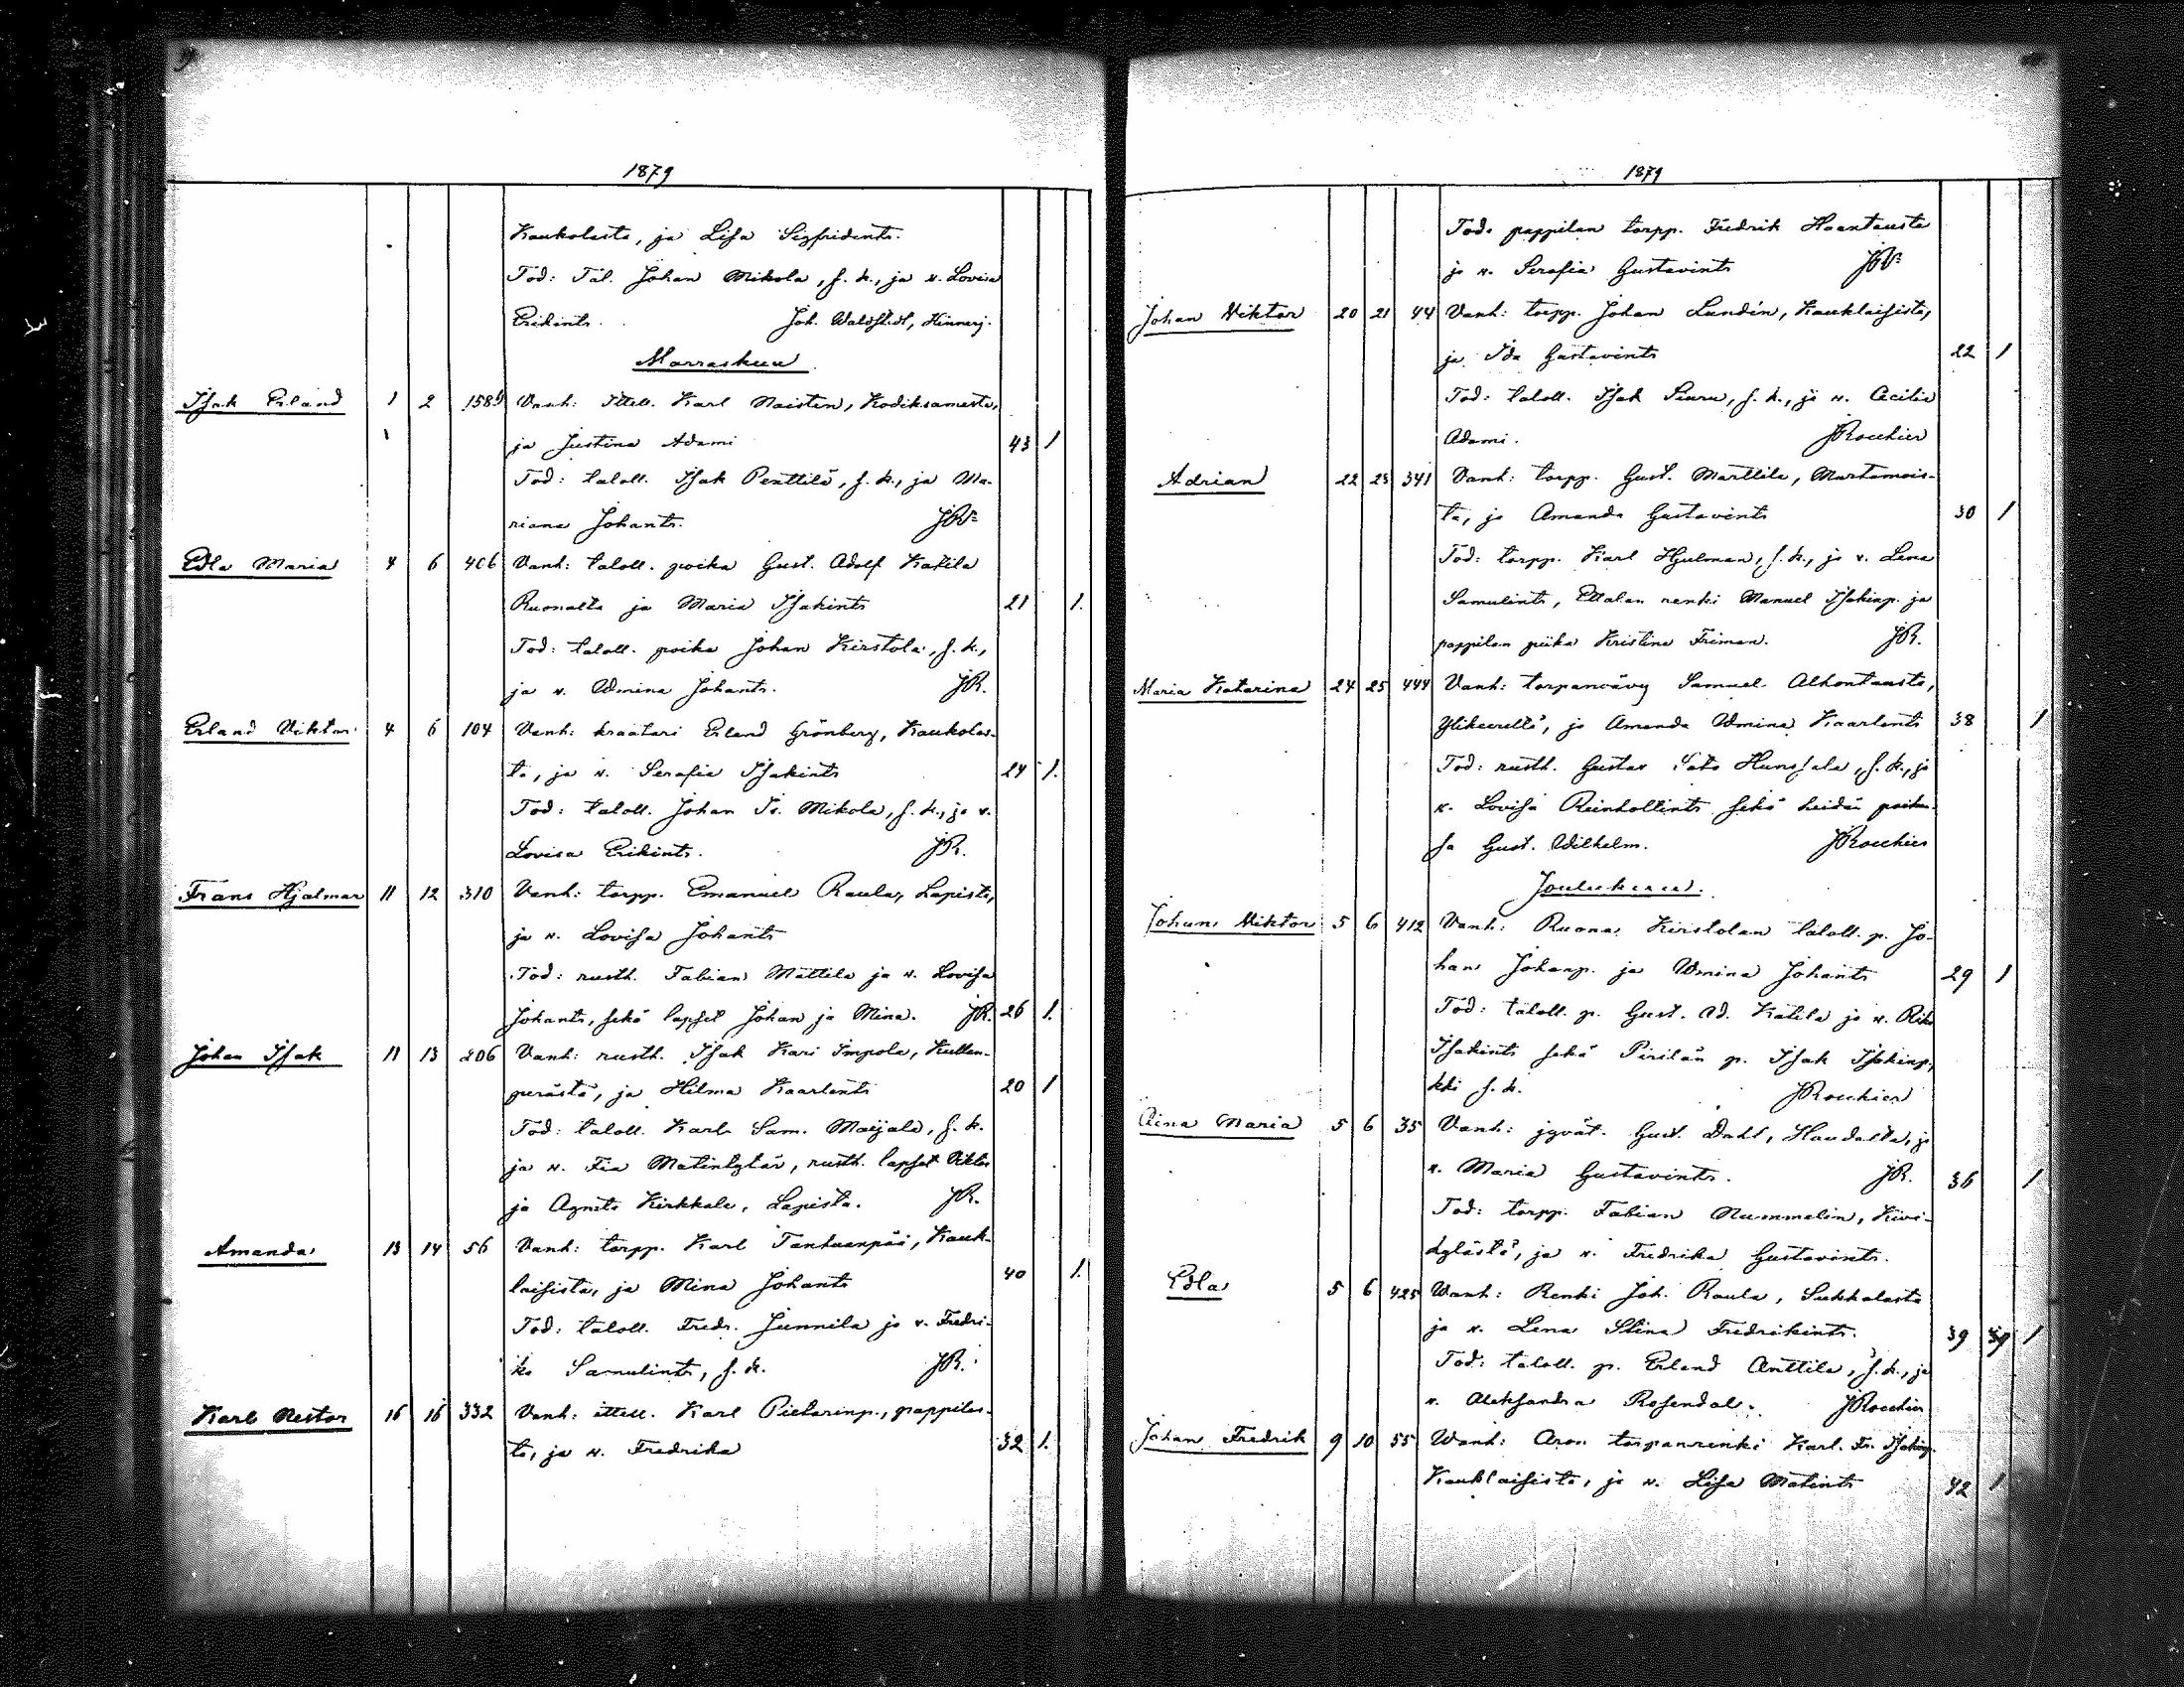 1879
Kaukolasta, ja Lisa Sigfridint:
Tod: Tal. Johan Mikola, s. k., ja v. Lovisa
Erikint: Joh. Waldstedt, Hinnerj.
Marraskuu
Isak Erland 1 2 158 Vanh: Ittell. Karl Naisten, Kodiksamista,
ja Justina Adami 43 1
Tod: taloll. Isak Penttilä, s. k., ja Ma-
riana Johant:
Edla Maria 4 6 406 Vanh: taloll. poika Gust. Adolf Katila
Ruonalta ja Maria Isakint: 21 1.
Tod: taloll. poika Johan Kirstola, s. k.,
ja v. Vmina Johant: JR.
Erland Viktor 4 6 104 Vanh: kraatari Erland Grönberg, Kaukolas-
ta, ja v. Serafia Isakint: 24 1.
Tod: taloll. Johan Is. Mikola, s. k., ja v.
Lovisa Erikint: JR.
Frans Hjalmar 11 12 310 Vanh: torpp. Emanuel Raula, Lapista,
ja v. Lovisa Johant:
Tod: rusth. Fabian Mattila ja v. Lovisa
Johant:, sekä lapset Johan ja Mina. JR. 26 1.
Johan Isak 11 13 206 Vanh: rusth. Isak Kari Impola, Kullan-
perästä, ja Hilma Kaarlent: 20 1
Tod: taloll. Karl Sam. Maijala, s. k.
ja v. Fia Matintytär, rusth. lapset Viktor
ja Agneta Kirkkala, Lapista. JR.
Amanda 13 14 56 Vanh: torpp. Karl Tanhuanpää, Kauk-
laisista, ja Mina Johant: 40 1.
Tod: taloll. Fredr. Junnila ja v. Fredri-
ka Samulint:, s. k. JR.
Karl Nestor 16 16 332 Vanh: ittell. Karl Pietarinp., pappilas-
ta, ja v. Fredrika 32 1.
1879
Tod. pappilan torpp. Fredrik Haantausta
ja v. Serafia Gustavint:
Johan Viktor 20 21 44 Vanh: torpp. Johan Lundén, Kauklaisista,
ja Ida Gustavint: 22 1
Tod: taloll. Isak Seuru, s. k., ja v. Cecilia
Adami. JRoschier
Adrian 22 23 341 Vanh: torpp. Gust. Marttila, Martamois-
ta, ja Amanda Gustavint: 30 1
Tod: torpp. Karl Hjulman, s. k., ja v. Lena
Samulint:, Ettalan renki Manuel Isakinp. ja
pappilan piika Kristina Friman. JR.
Maria Katarina 24 25 444 Vanh: torpanvävy Samuel Alhontausta,
Ylikeveltä, ja Amanda Vmina Kaarlent: 38 1
Tod: rusth. Gustav Sato Hunsala, s. k., ja
v. Lovisa Reinholtint: sekä heidän poikan-
sa Gust. Wilhelm. JRoschier
Joulukuu.
Johan Viktor 5 6 412 Vanh: Ruona Kirstolan taloll. p. Jo-
han Johanp. ja Vmina Johant: 29 1
Tod: taloll. p. Gust. Ad. Katila ja v.
Isakint: sekä Pirilän p. Isak Isakinp.,
kki s. k. JRoschier
Aina Maria 5 6 35 Vanh: jyvät. Gust. Dahl, Haudalta, ja
v. Maria Gustavint: JR. 36 1
Tod: torpp. Fabian Nummelin, Kivi-
kylästä, ja v. Fredrika Gustavint:
Edla 5 6 425 Wanh: Renki Joh. Raula, Sukkalasta
ja v. Lena Stina Fredrikint: 39 1
Tod: taloll. p. Erland Anttila, s. k., ja
v. Aleksandra Rosendal. JRoschier
Johan Fredrik 9 10 55 Wanh: Aron torpanrenki Karl. Fr. Isakinp.
Kauklaisista, ja v. Lisa Matint: 42 1